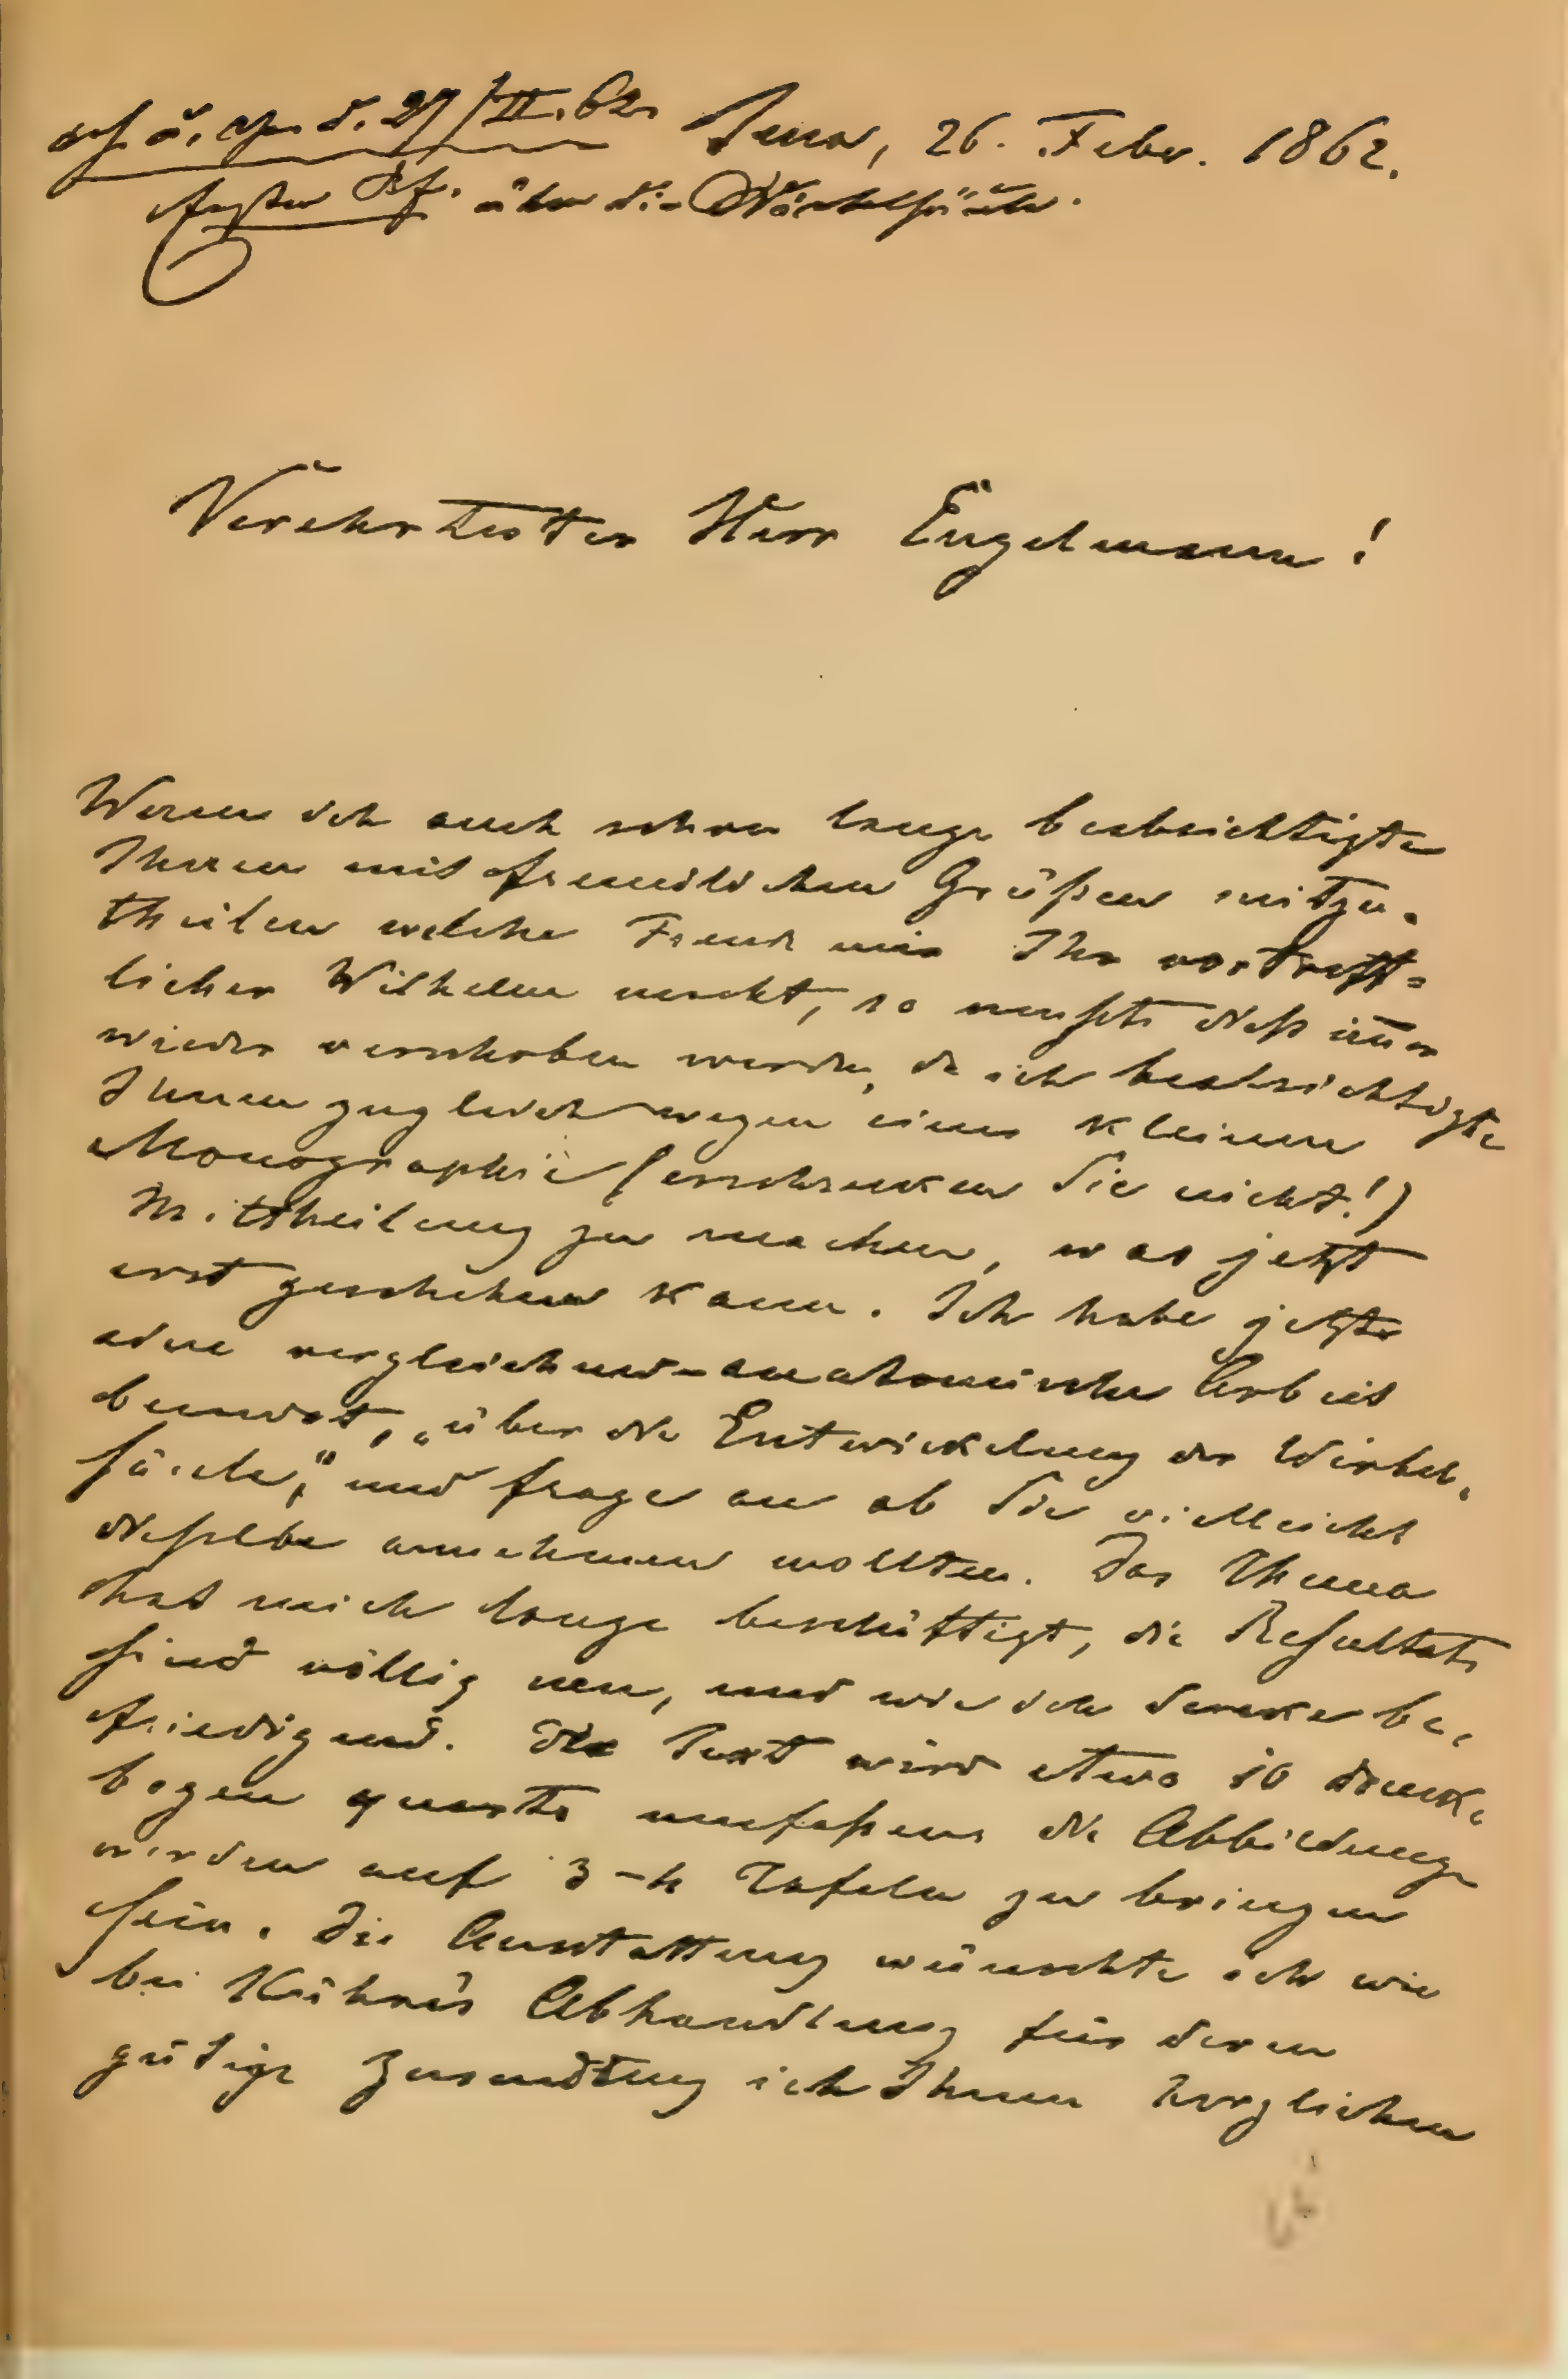 27/II. 62. Jena, 26. Febr. 1862.
über die Wirbelsäule.
Verehrtester Herr Engelmann!
Wenn ich auch schon lange beabsichtigte
Ihnen mit freundlichen Grüßen mitzu-
theilen welche Freude mir Ihr vortreff-
licher Wilhelm macht, so mußte dieß im̅er
wieder verschoben werden, da ich beabsichtigte
Ihnen zugleich wegen einer kleinen
Monographie (erschrecken Sie nicht!)
Mittheilung zu machen, was jetzt
erst geschehen kann. Ich habe jetzt
eine vergleichend-anatomische Arbeit
beendet, „über die Entwickelung der Wirbel-
säule," und frage an ob Sie vielleicht
dieselbe annehmen wollten. Das Thema
hat mich lange beschäftigt, die Resultate
sind völlig neu, und wie ich denke be-
friedigend. Der Text wird etwa 10 Druck-
bogen quarto umfaßen, die Abbildungen
werden auf 3-4 Tafeln zu bringen
sein. Die Ausstattung wünschte ich wie
bei Kühne's Abhandlung für deren
gütige Zusendung ich Ihnen herzlichen